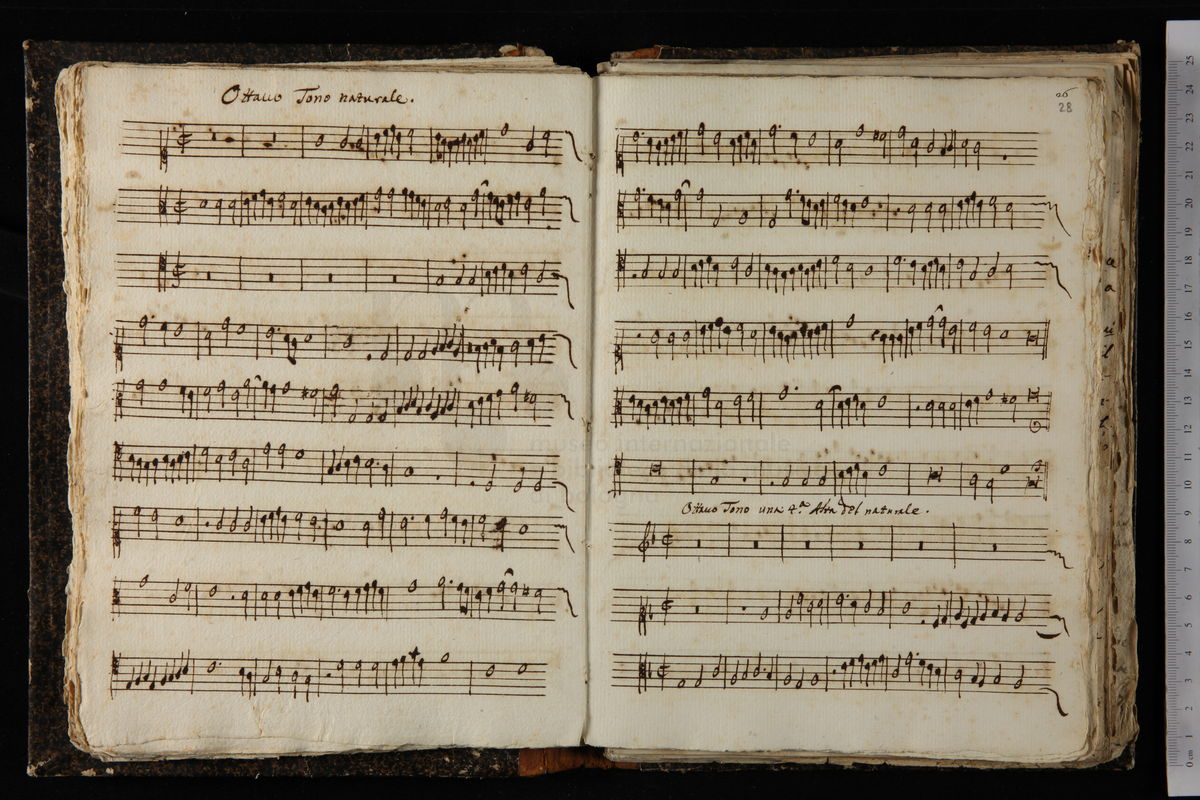 Ottauo Tono naturale.
26
28
museo internazionale
Ottauo Tono una 4.ª Alta del naturale.
25
24
23
22
21
20
19
18
17
16
15
14
13
12
11
10
9
8
7
6
5
4
3
2
1
0 cm